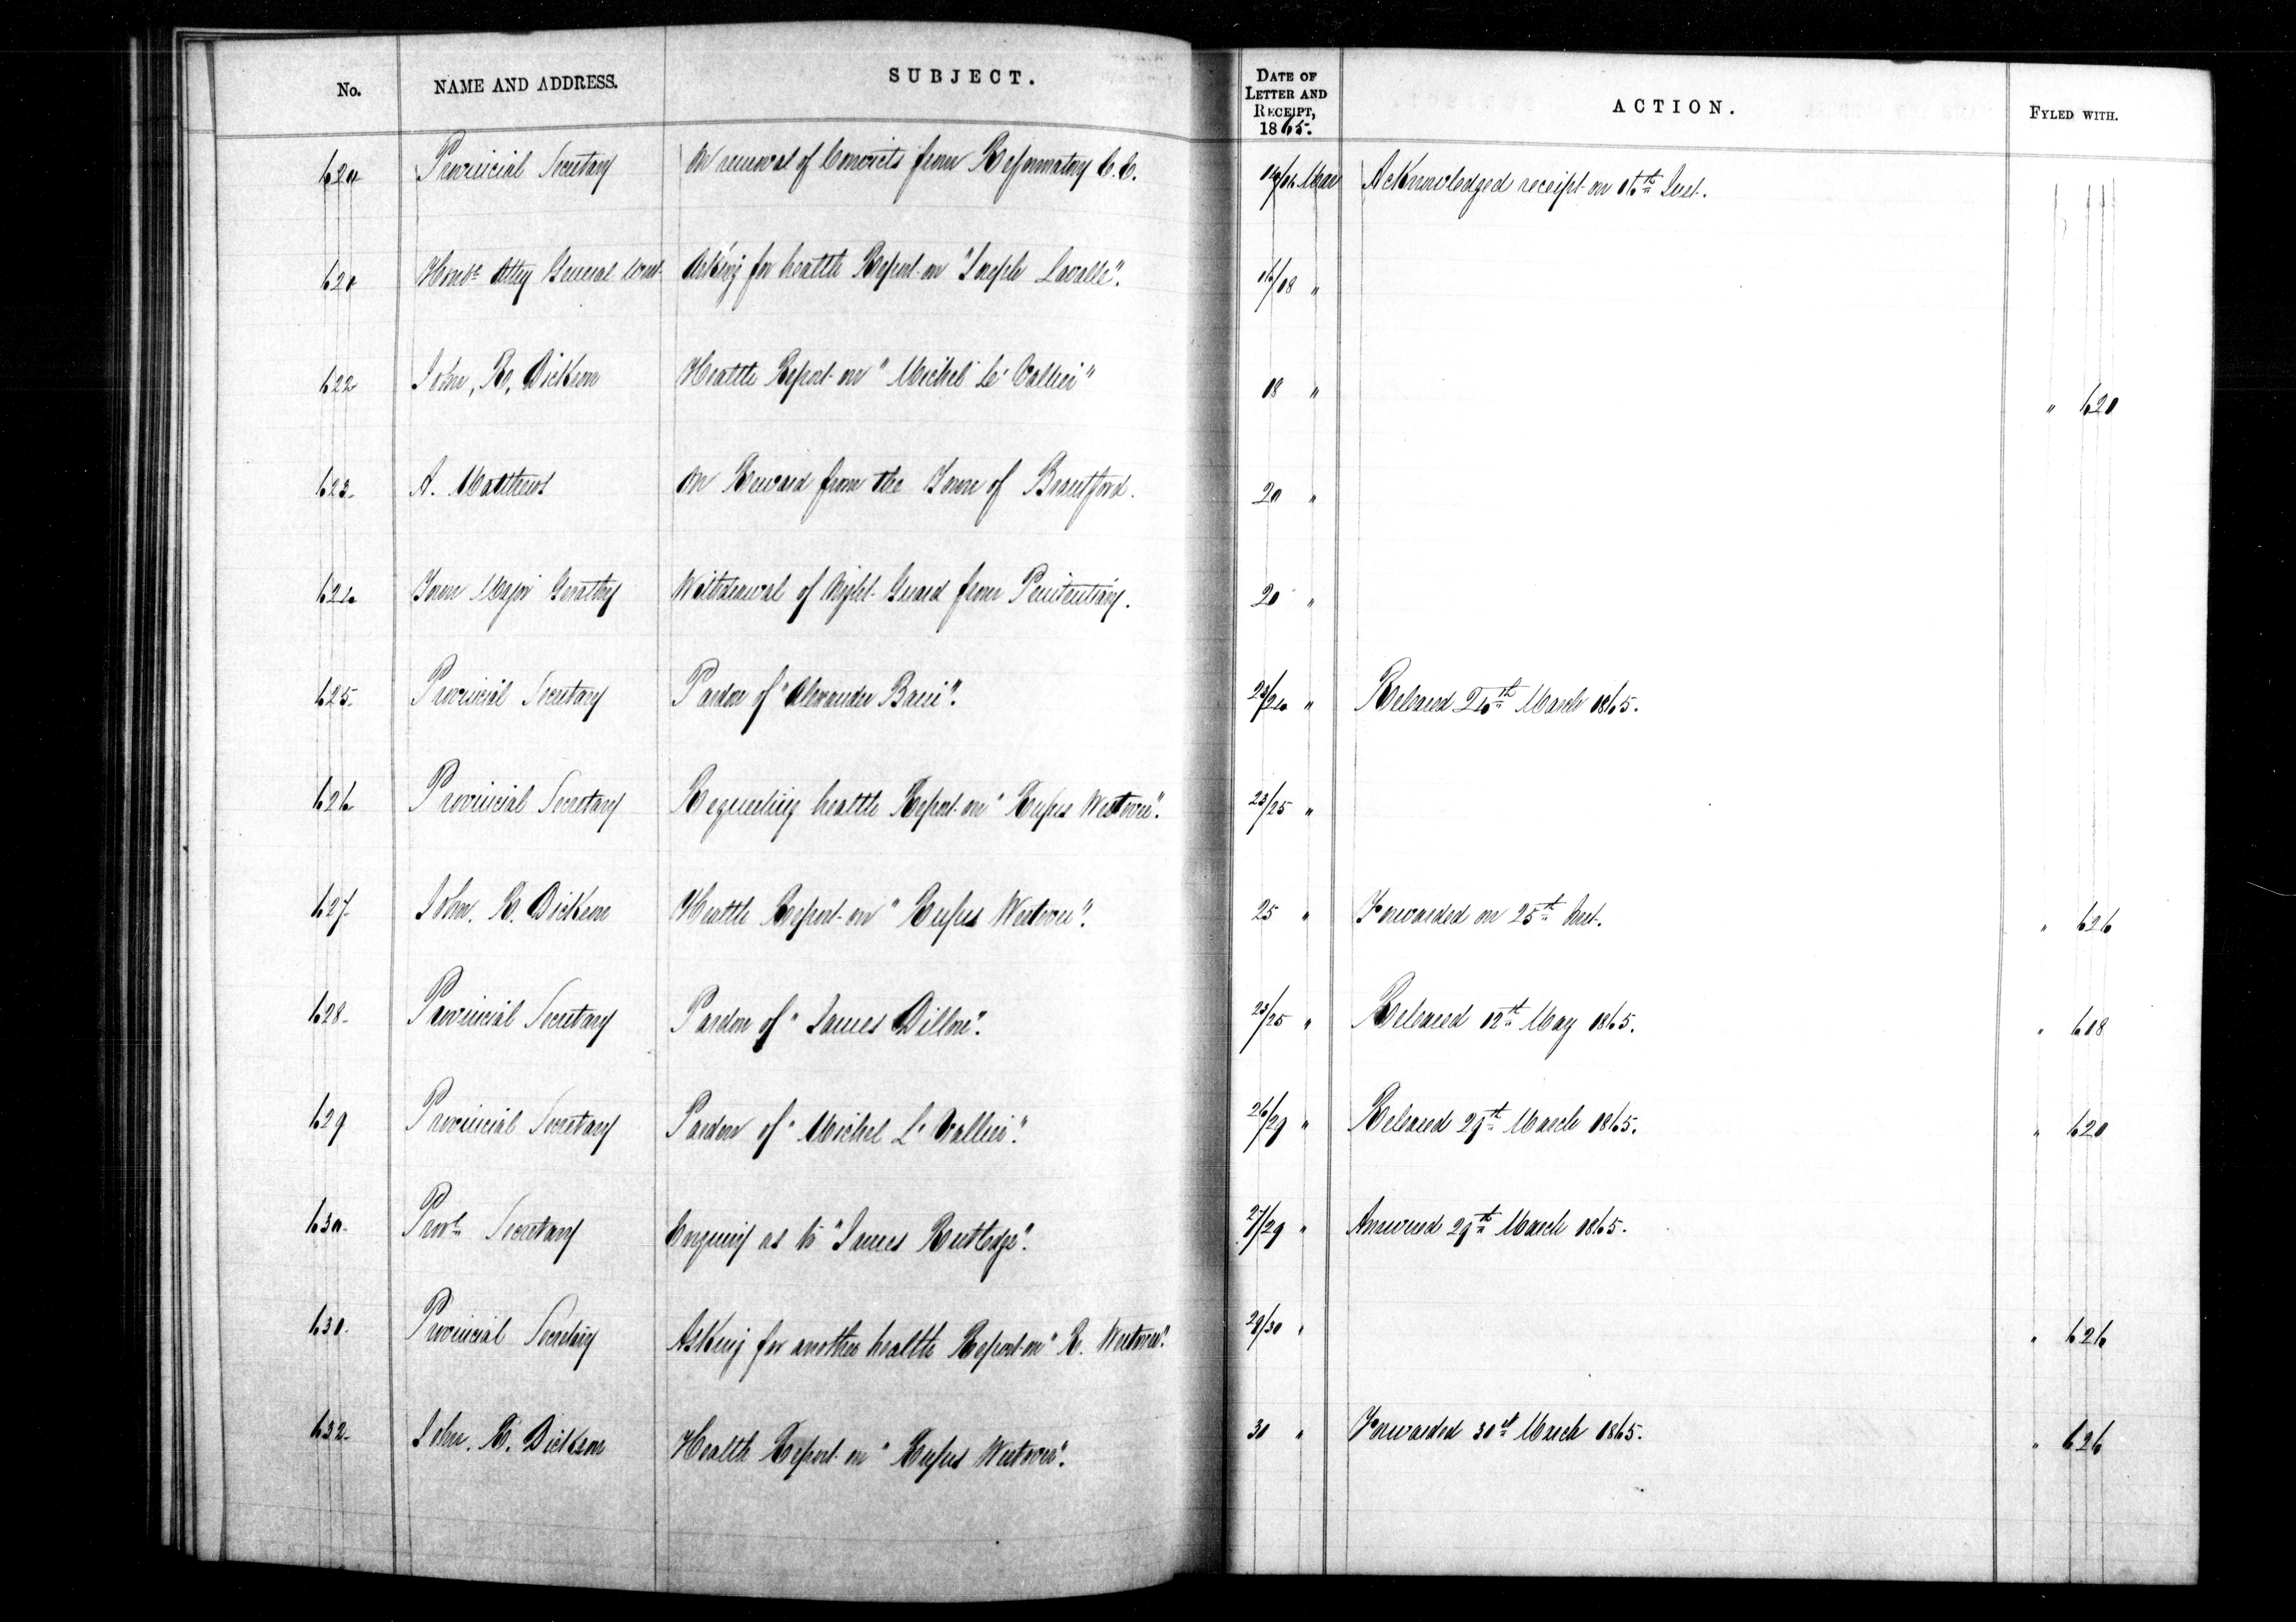 No. NAME AND ADDRESS. SUBJECT. DATE OF LETTER AND RECEIPT, 1865. ACTION. FYLED WITH.
620 Provincial Secretary On removal of Convicts from Reformatory C.E. 14/16 Mar Acknowledged receipt on 16th Inst.
621 Honble Atty General West Asking for health Report on "Joseph Lavalle". 16/18 "
622 John, R, Dickson Health Report on "Michel Le Vallier" 18 " " 621
623 A. Matthews On Reward from the Town of Brantford. 20 "
624 Town Major Geraghty Withdrawal of Night Guard from Penitentiary. 20 "
625 Provincial Secretary Pardon of "Alexander Bain". 23/24 " Released 24th March 1865.
626 Provincial Secretary Requesting health Report on "Rufus Westover". 23/25 "
627 John. R. Dickson Health Report on "Rufus Westover". 25 " Forwarded on 25th Inst. " 626
628 Provincial Secretary Pardon of "James Dillon". 23/25 " Released 12th May 1865. " 618
629 Provincial Secretary Pardon of "Michel Le Vallier". 26/29 " Released 29th March 1865. " 621
630 Provl Secretary Enquiry as to "James Rutledge". 27/29 " Answered 29th March 1865.
631 Provincial Secretary Asking for another health Report on "R. Westover". 29/30 " " 626
632 John. R. Dickson Health Report on "Rufus Westover". 30 " Forwarded 30st March 1865. " 626